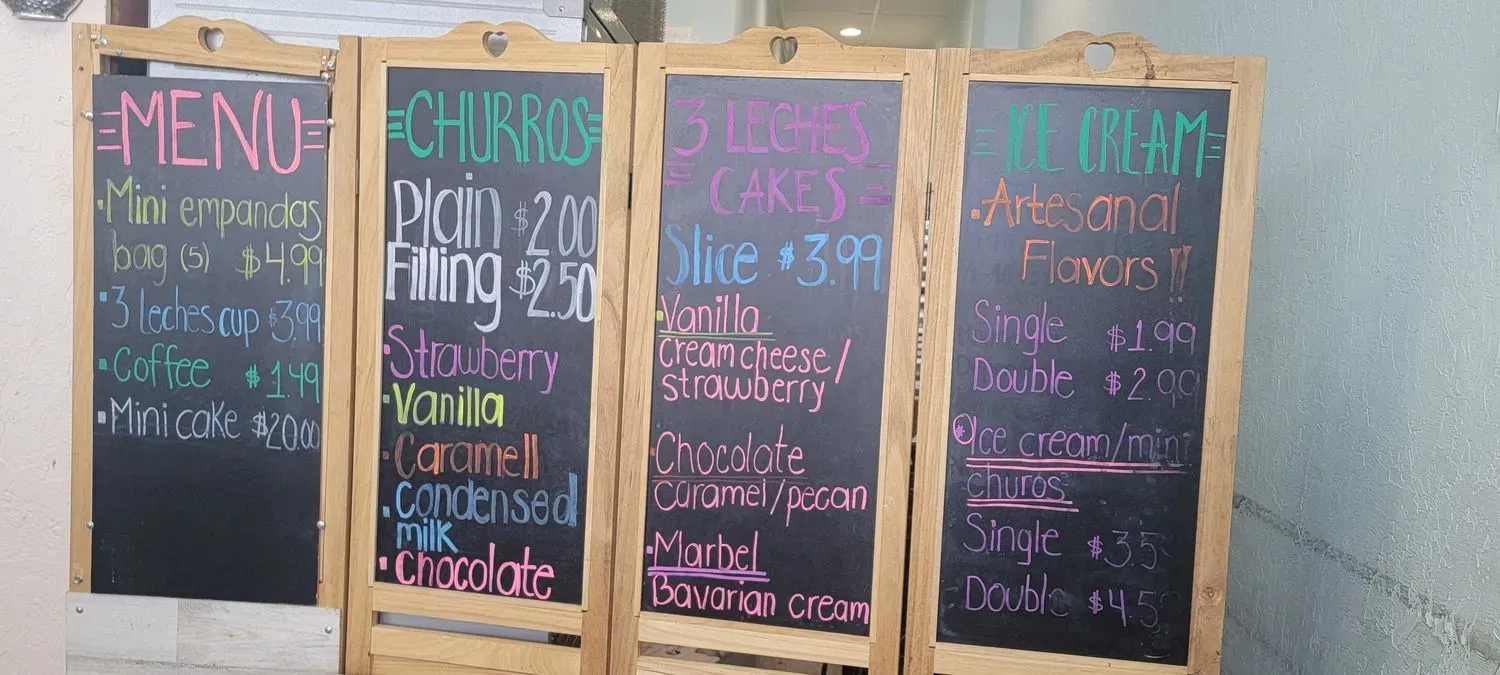 MENU
Mini empandas
bag (5) $4.99
3 Leches cup $3.99
Coffee $1.49
Mini cake $20.00
CHURROS
Plain $2.00
Filling $2.50
Strawberry
Vanilla
Caramell
Condensed
milk
Chocolate
3 LECHES
CAKES
Slice $3.99
Vanilla
Cream cheese/
strawberry
Chocolate
Caramel/pecan
Marbel
Bavarian cream
ICE CREAM
Artesanal
Flavors!!
Single $1.99
Double $2.99
*Ice cream/mini
churos
Single $3.5
Double $4.5